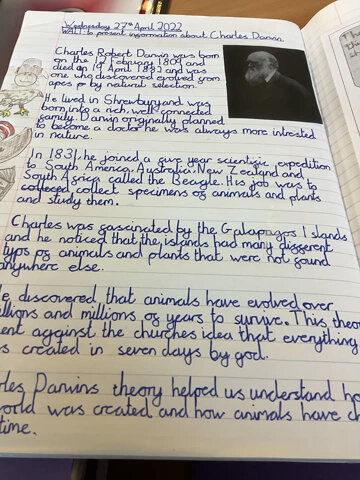 Wednesday 27th April 2022
WALT to present information about Charles Darwin.
Charles Robert Darwin was born
on the 12 February 1809 and
died on 19 April 1882 and was
one who discovered evolved from
apes by natural selection.
He lived in Shrewsbury and was
born into a rich, well-connected
family. Darwin originally planned
to become a doctor he was always more intrested
in nature.
In 1831, he joined a five year scientific expedition
to South America, Australia, New Zealand and
South Africa called the Beagle. His job was to
collect specimens of animals and plants
and study them.
Charles was fascinated by the Galapagos Islands
and he noticed that the islands had many different
typs of animals and plants that were not found
anywhere else.
e discovered that animals have evolved over
illions and millions of years to survive. This theory
ent against the churches idea that everything
s created in seven days by god.
rles Darwins theory helped us understand ho
world was created and how animals have ch
time.